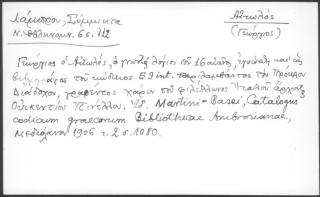 Λάμπρου, Σύμμικτα
Αἰτωλός
Ν. Ἑλληνομν. 6 σ. 112
(Γεώργιος)
Γεώργιος ὁ Αἰτωλός, ὁ γνωστὸς λόγιος τοῦ 16 αἰῶνος, καὶ ὡς
βιβλιογράφος τοῦ κώδικος Ε 9 inf. περιλαμβάνοντος τὸν Πρόκλον
Διάδοχον, γραφέντος χάριν τοῦ φιλέλληνος Ἰταλοῦ
Οὐικεντίου Πινέλλου. Martini - Bassi, Catalogus
codicum graecorum Bibliothecae Ambrosianae,
Μεδιόλανον 1906 τ. 2 σ. 1080.